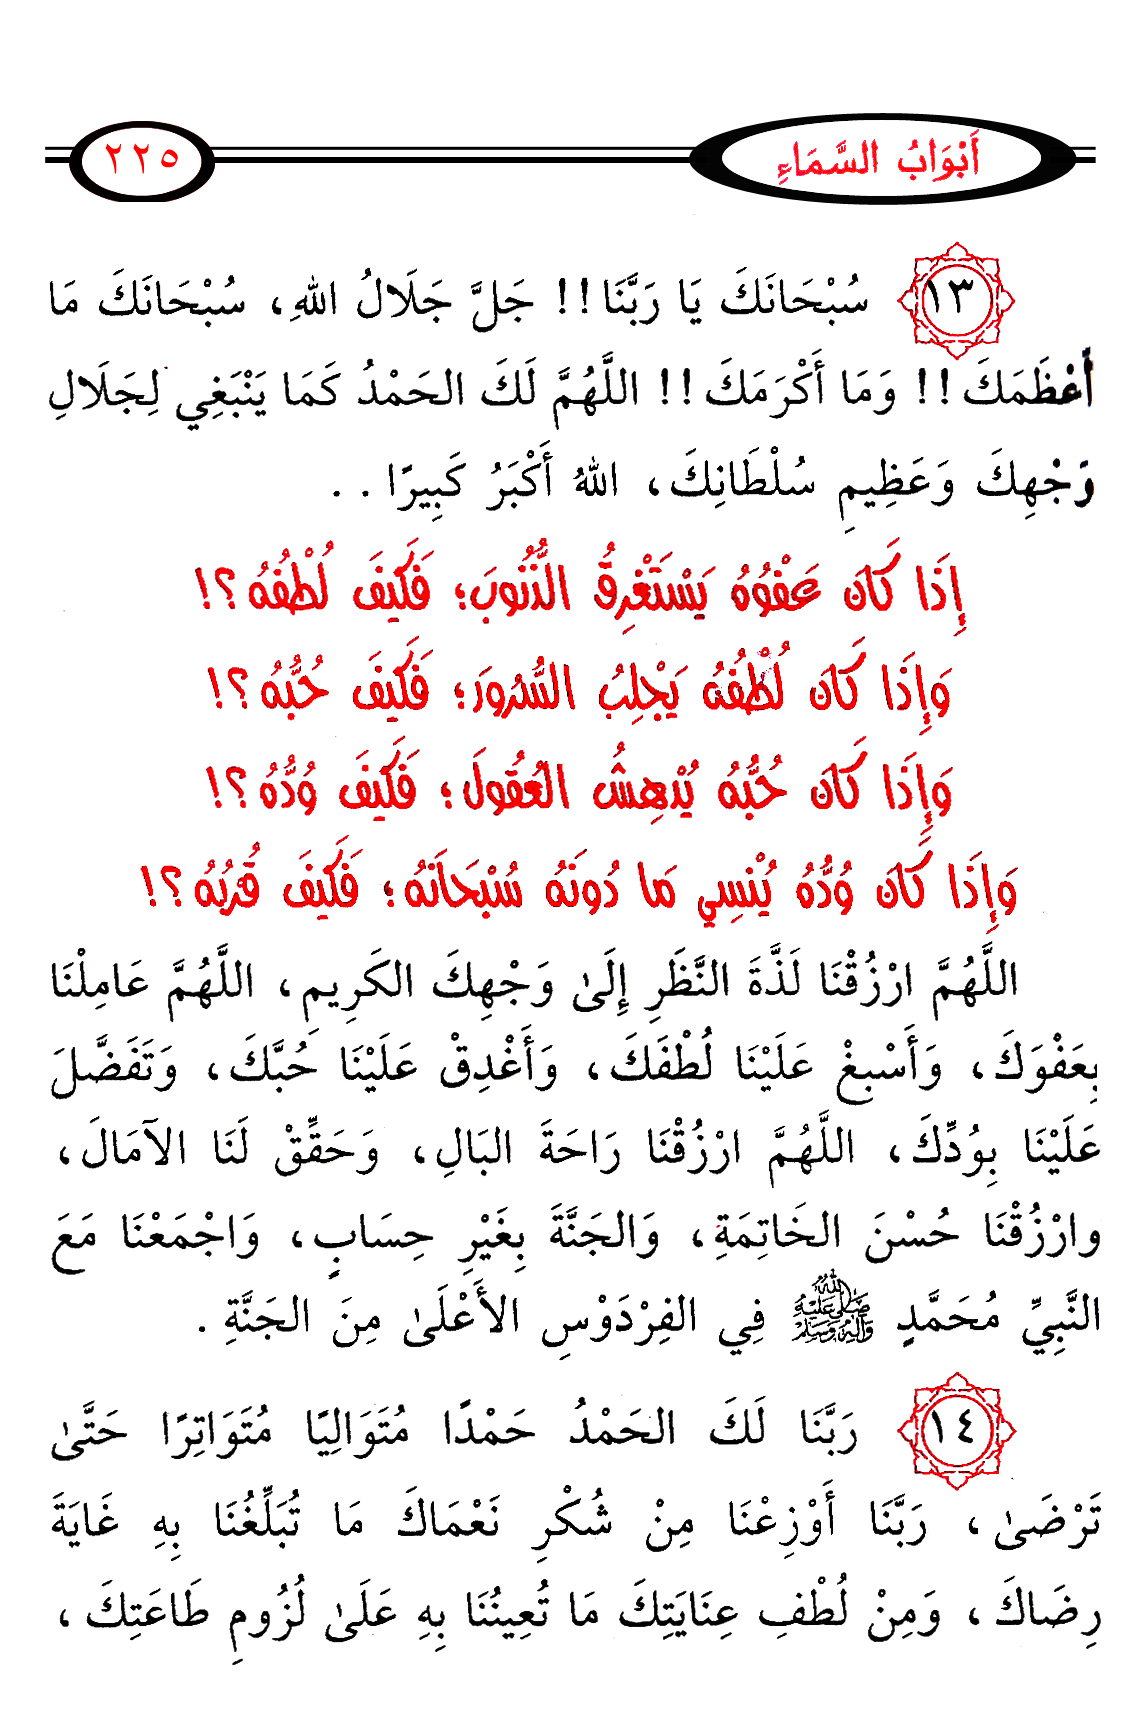 أَبْوَابُ السَّمَاءِ
٢٢٥
١٣ سُبْحَانَكَ يَا رَبَّنَا!! جَلَّ جَلَالُ اللهِ، سُبْحَانَكَ مَا
أَعْظَمَكَ!! وَمَا أَكْرَمَكَ!! اللَّهُمَّ لَكَ الحَمْدُ كَمَا يَنْبَغِي لِجَلَالِ
وَجْهِكَ وَعَظِيمِ سُلْطَانِكَ، اللهُ أَكْبَرُ كَبِيرًا . .
إِذَا كَانَ عَفْوُهُ يَسْتَغْرِقُ الذُّنُوبَ؛ فَكَيْفَ لُطْفُهُ؟!
وَإِذَا كَانَ لُطْفُهُ يَجْلِبُ السُّرُورَ؛ فَكَيْفَ حُبُّهُ؟!
وَإِذَا كَانَ حُبُّهُ يُدْهِشُ العُقُولَ؛ فَكَيْفَ وُدُّهُ؟!
وَإِذَا كَانَ وُدُّهُ يُنْسِي مَا دُونَهُ سُبْحَانَهُ؛ فَكَيْفَ قُرْبُهُ؟!
اللَّهُمَّ ارْزُقْنَا لَذَّةَ النَّظَرِ إِلَىٰ وَجْهِكَ الكَرِيمِ، اللَّهُمَّ عَامِلْنَا
بِعَفْوَكَ، وَأَسْبِغْ عَلَيْنَا لُطْفَكَ، وَأَغْدِقْ عَلَيْنَا حُبَّكَ، وَتَفَضَّلَ
عَلَيْنَا بِوُدِّكَ، اللَّهُمَّ ارْزُقْنَا رَاحَةَ البَالِ، وَحَقِّقْ لَنَا الآمَالَ،
وارْزُقْنَا حُسْنَ الخَاتِمَةِ، وَالجَنَّةَ بِغَيْرِ حِسَابٍ، وَاجْمَعْنَا مَعَ
النَّبِيِّ مُحَمَّدٍ صلى الله عليه وآله وسلم فِي الفِرْدَوْسِ الأَعْلَىٰ مِنَ الجَنَّةِ .
١٤ رَبَّنَا لَكَ الحَمْدُ حَمْدًا مُتَوَالِيًا مُتَوَاتِرًا حَتَّىٰ
تَرْضَىٰ، رَبَّنَا أَوْزِعْنَا مِنْ شُكْرِ نَعْمَاكَ مَا تُبَلِّغُنَا بِهِ غَايَةَ
رِضَاكَ، وَمِنْ لُطْفِ عِنَايَتِكَ مَا تُعِينُنَا بِهِ عَلَىٰ لُزُومِ طَاعَتِكَ،